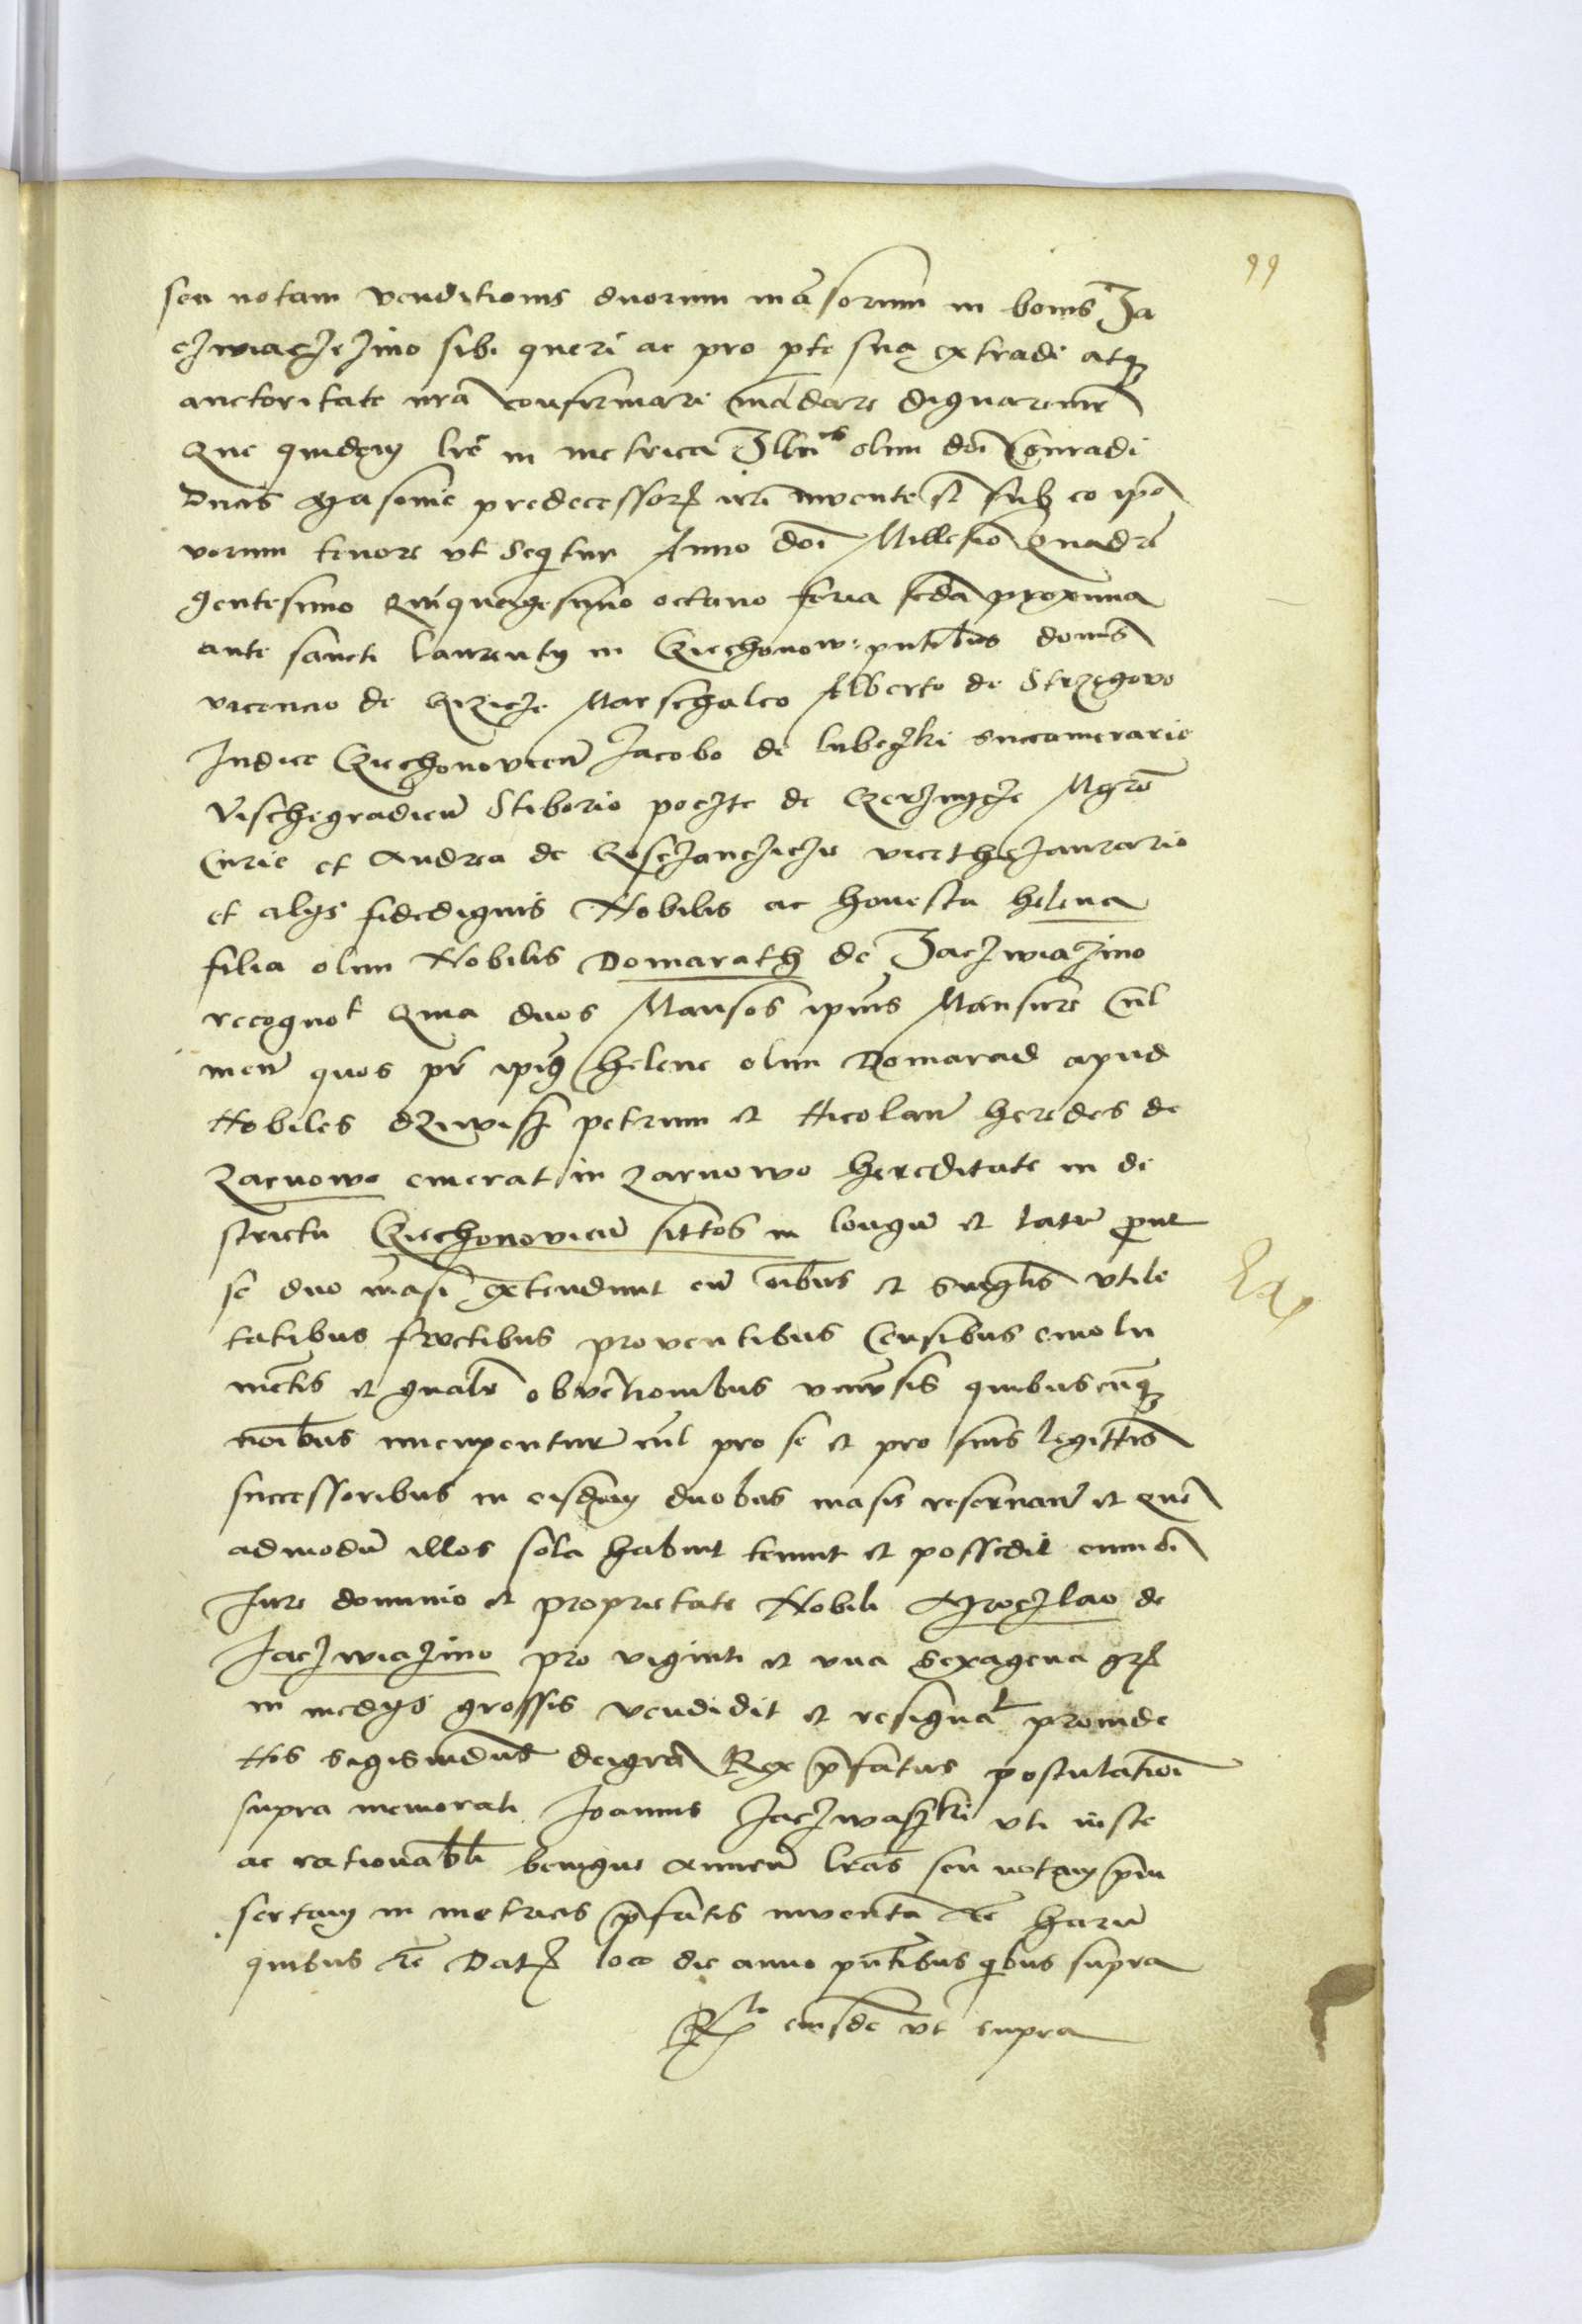 99
seu notam venditionis duorum mãsorum in bonis Ja
czwiaczezino sibi queri ac pro pte sua extradi atq3
auctoritate nrã confirmari mãdare dignaremr
Que quidem lrẽ in metrica Illris olim dñi Conradi
Ducis Masovie predecessor nri invente st sub eo ipo
verum tenore ut sequitur Anno dñi Millesiõ Quadrĩ
gentesimo Quinquagesimo octavo feria scda proxima
ante sancti Laurentij in Cziechonow: pntibus dominis
vicencio de Gizicze Marschalco Alberto de Strzegovo
Judice Cziechonovien Jacobo de lubezki succamerario
Vischegradien Stiborio poczte de Czerznycze Mgrõ
Curie et Andrea de Gosczanczicze vicethezaurario
et alijs fidedignis Nobilis ac honesta helena
filia olim Nobilis Domarath de Jaczwiazino
recognot Quia duos Mansos ipius Mansure Cul
men quos pr ipius helene olim Domarad apud
Nobiles dziwisz petrum et Nicolaum heredes de
Zarnowo emerat in Zarnowo hereditate in di
strictu Cziechonovien sittos in longũ et latũ prout
se duo mãsi extendunt cũ oibus et singlis utili
tatibus fructibus proventibus Censibus emolu
mẽtis et gnalr obvẽtionibus universis quibuscũq3
noĩbus nucupentur nil pro se et pro suis legittis
successoribus in eisdem duobus masis reservan et quẽ
admodũ illos sola habuit tenuit et possedit omnõ
Jure dominio et proprietate Nobili Mroczlao de
Jaczwiazino pro viginti et una sexagena gr
in medijs grossis vendidit et resignat proinde
Nos sigismũdus deigrã Rex prefatus postulationi
supra memorati Joannis Jaczwaszki uti iuste
ac rationabli benigne annuen lrãs seu notam prein
sertam in metricis prefatis inventã rẽ harũ
quibus rẽ Dat loco die anno pntibus qibus supra
Rto eiusdẽ ut supra